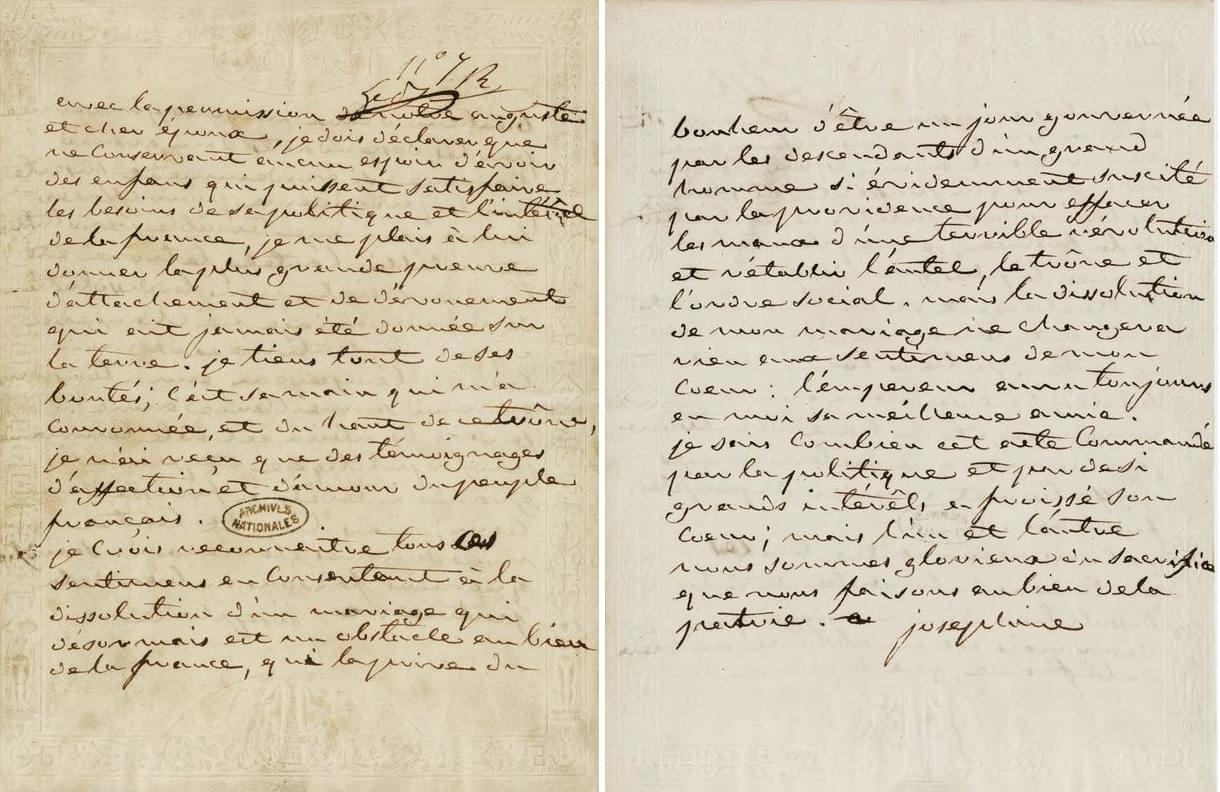 avec la permission de notre auguste
et cher époux, je dois déclarer que
ne conservant aucun espoir d'avoir
des enfans qui puissent satisfaire
les besoins de sa politique et l'intérêt
de la france, je me plais à lui
donner la plus grande preuve
d'attachement et de dévouement
qui ait jamais été donnée sur
la terre. je tiens tout de ses
bontés; c'est sa main qui m'a
couronnée, et du haut de ce trône,
je n'ai reçu que des témoignages
d'affection et d'amour du peuple
français.
ARCHIVES
NATIONALES
je crois reconnaitre tous ces
sentimens en consentant à la
dissolution d'un mariage qui
désormais est un obstacle au bien
de la france, qui la prive du
bonheur d'être un jour gouvernée
par les descendants d'un grand
homme si évidemment suscité
par la providence pour effacer
les maux d'une terrible révolution
et rétablir l'autel, le trône et
l'ordre social. mais la dissolution
de mon mariage ne changera
rien aux sentimens de mon
coeur: l'empereur aura toujours
en moi sa meilleure amie.
je sais combien cet acte commandé
par la politique et par de si
grands intérêts a froissé son
coeur; mais l'un et l'autre
nous sommes glorieux du sacrifice
que nous faisons au bien de la
patrie.
joséphine